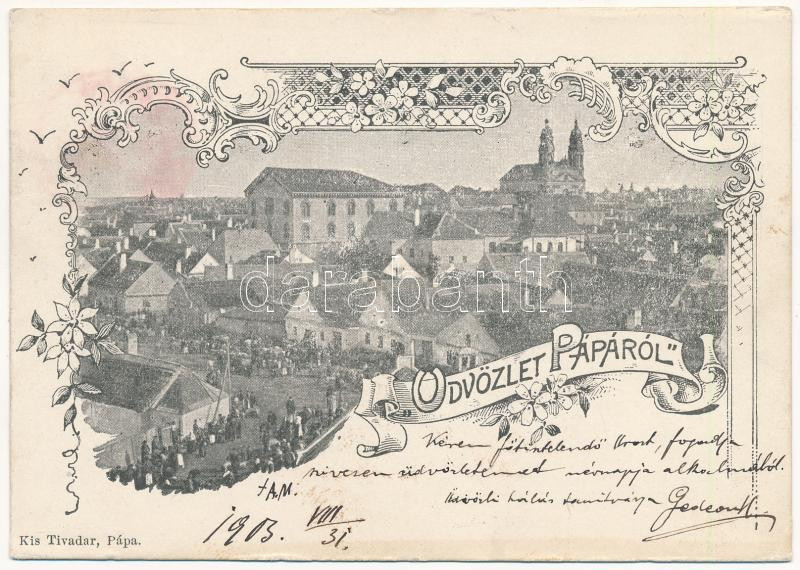 „ÜDVÖZLET PÁPÁRÓL"
darabanth
Kérem főtisztelendő Urat, fogadja
szívesen üdvözletemet névnapja alkalmából.
Üdvözli hálás tanítványa Gedeon
† A.M.
1903. VIII/31.
Kis Tivadar, Pápa.